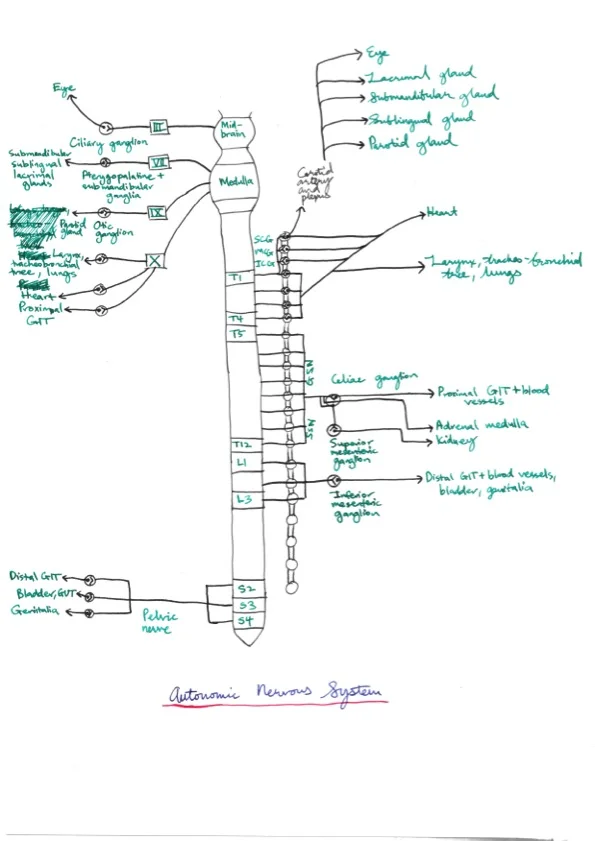 Eye
III
Ciliary ganglion
Submandibular
sublingual
lacrimal
glands
VII
Pterygopalatine +
submandibular
ganglia
IX
Parotid
gland
Otic
ganglion
X
Larynx,
tracheobronchial
tree, lungs
Heart
Proximal
GIT
Mid-
brain
Medulla
T1
T4
T5
T12
L1
L3
S2
S3
S4
Distal GIT
Bladder, GUT
Genitalia
Pelvic
nerve
Eye
Lacrimal gland
Submandibular gland
Sublingual gland
Parotid gland
Carotid
artery
and
plexus
SCG
MCG
ICG
Heart
Larynx, tracheo-bronchial
tree, lungs
Celiac ganglion
Proximal GIT + blood
vessels
Adrenal medulla
Kidney
Superior
mesenteric
ganglion
Distal GIT + blood vessels,
bladder, genitalia
Inferior
mesenteric
ganglion
Autonomic Nervous System